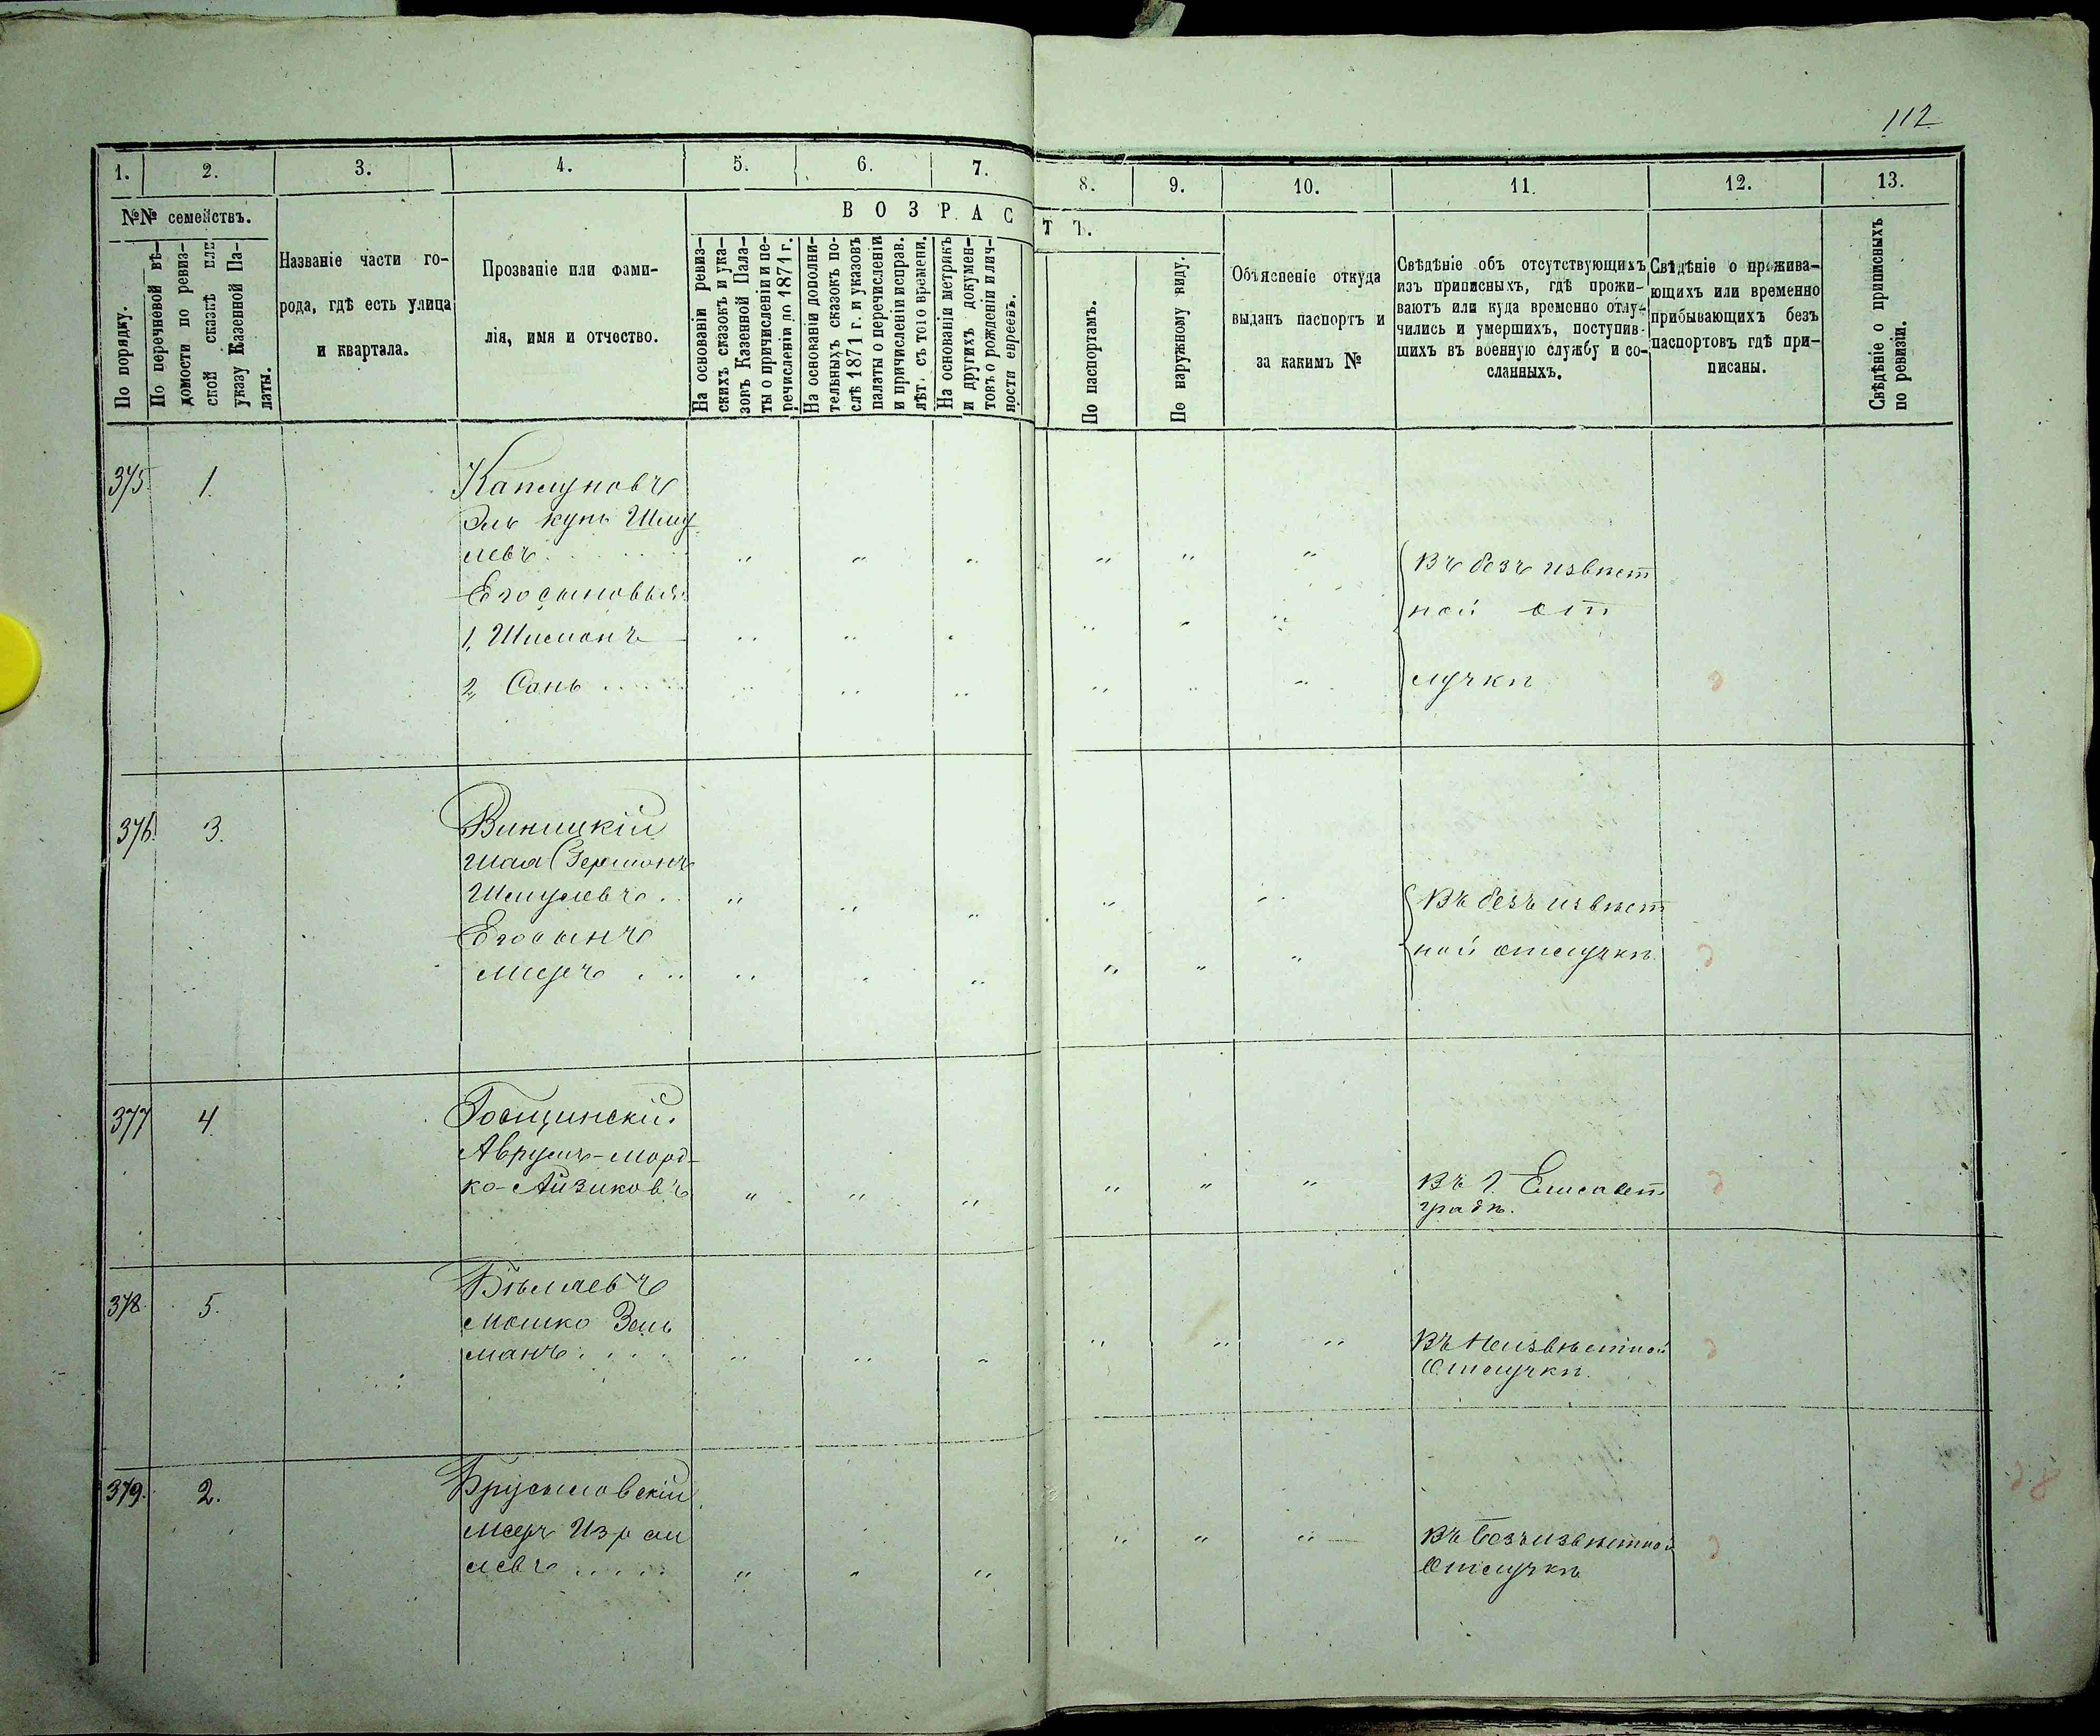 112
1.
2.
3.
4.
5.
6.
7.
8.
9.
10.
11.
12.
13.
№№ семействъ.
ВОЗРАС
ТЪ.
По порядку.
По перечневой вѣ-
домости по ревиз-
ской сказкѣ или
указу Казенной Па-
латы.
Названіе части го-
рода, гдѣ есть улица
и квартала.
Прозваніе или фами-
лія, имя и отчество.
На основаніи ревиз-
скихъ сказокъ и ука-
зовъ Казенной Пала-
ты о причисленіи и пе-
речисленіи до 1871 г.
На основаніи дополни-
тельныхъ сказокъ по-
слѣ 1871 г. и указовъ
палаты о перечисленіи
и причисленіи исправ.
лѣт. съ того времени.
На основаніи метрикъ
и другихъ докумен-
товъ о рожденіи и лич-
ности евреевъ.
По паспортамъ.
По наружному виду.
Объясненіе откуда
выданъ паспортъ и
за какимъ №
Свѣдѣніе объ отсутствующихъ
изъ приписныхъ, гдѣ прожи-
ваютъ или куда временно отлу-
чились и умершихъ, поступив-
шихъ въ военную службу и со-
сланныхъ.
Свѣдѣніе о прожива-
ющихъ или временно
прибывающихъ безъ
паспортовъ гдѣ при-
писаны.
Свѣдѣніе о приписныхъ
по ревизіи.
375 1. Каплуновъ
Шму
левъ
Его сыновья:
1, Шимонъ
2,
Въ безъ извѣст
ной от
лучкѣ
376. 3. Виницкій
Шая Гершонъ
Шмулевъ
Его сынъ
Мееръ
Въ безъ извѣст
ной отлучкѣ.
377 4 Гощинскій
Аврумъ-Морд-
ко-Айзиковъ
Въ г. Елисавет
градѣ.
378. 5. Бѣляевъ
Мошко Зель
манъ
Въ неизвѣстной
отлучкѣ.
379. 2. Брусиловскій
Мееръ Израи
левъ
Въ безъизвѣстной
отлучкѣ